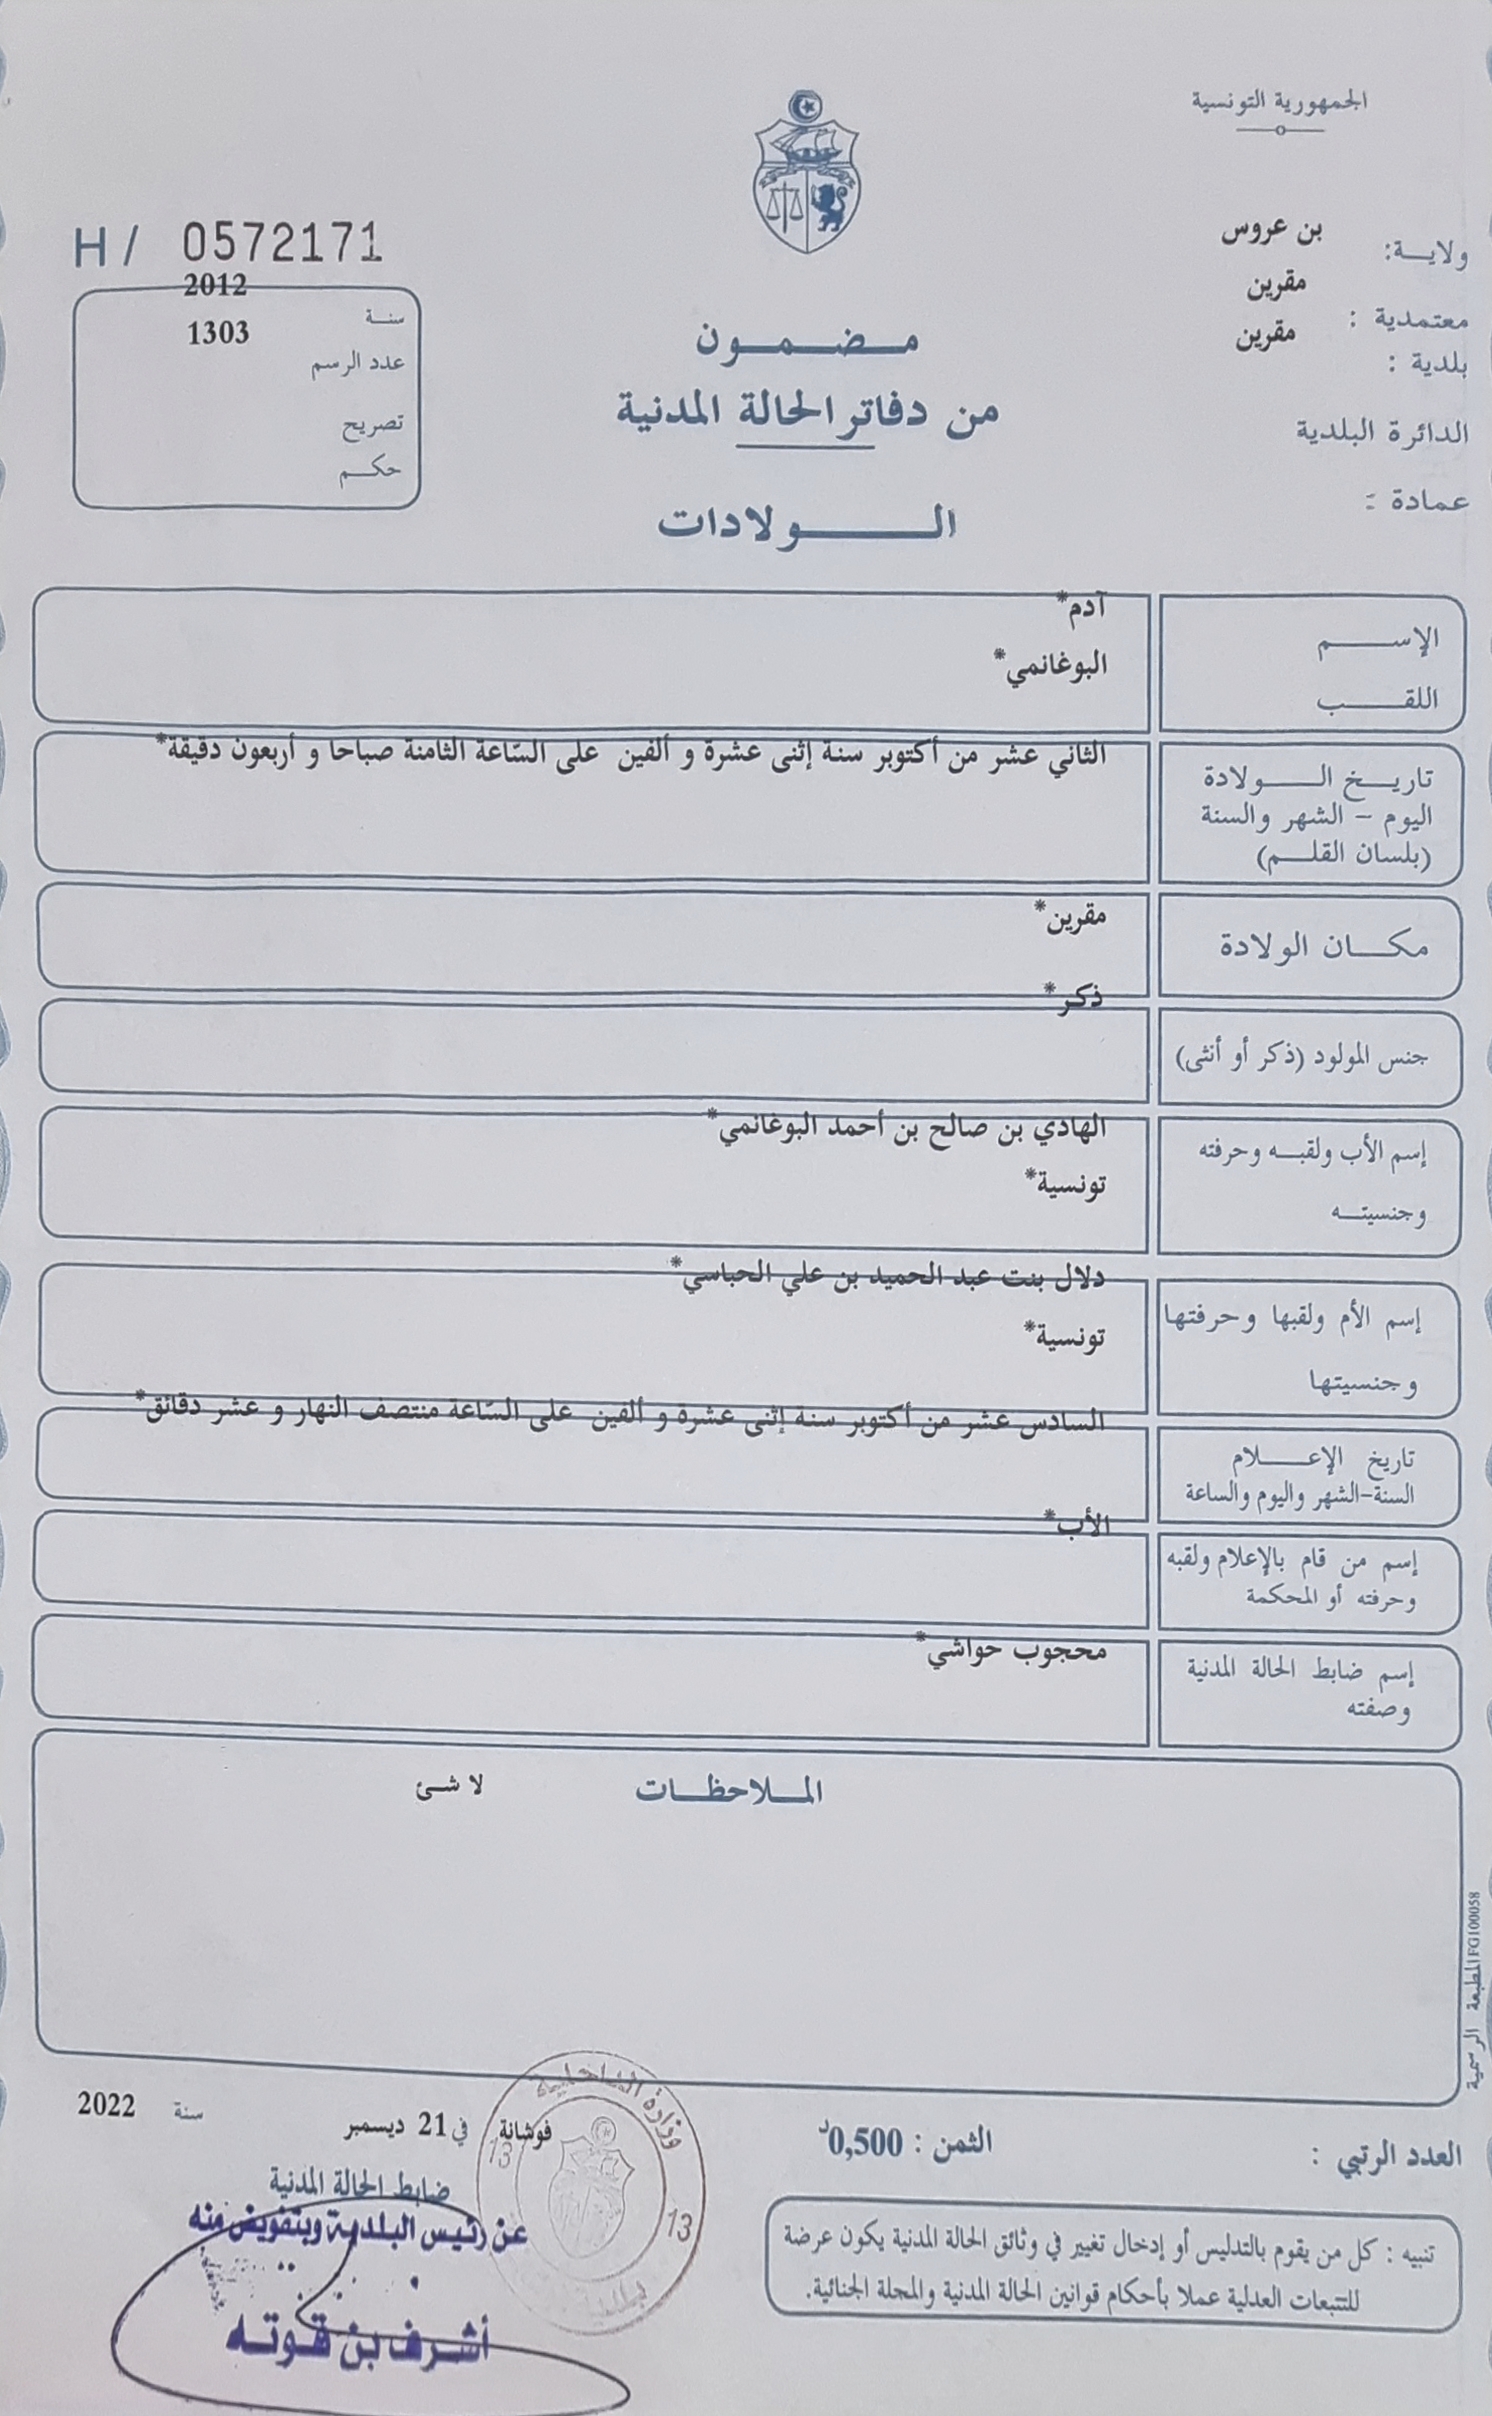 الجمهورية التونسية
ولاية: بن عروس
معتمدية : مقرين
بلدية : مقرين
الدائرة البلدية
عمادة :
H / 0572171
سنة 2012
عدد الرسم 1303
تصريح
حكم
مضمون
من دفاتر الحالة المدنية
الولادات
الإسم آدم*
اللقب البوغانمي*
تاريخ الولادة الثاني عشر من أكتوبر سنة إثنى عشرة و ألفين على السّاعة الثامنة صباحا و أربعون دقيقة*
اليوم - الشهر والسنة
(بلسان القلم)
مكان الولادة مقرين*
جنس المولود (ذكر أو أنثى) ذكر*
إسم الأب ولقبه وحرفته الهادي بن صالح بن أحمد البوغانمي*
وجنسيته تونسية*
إسم الأم ولقبها وحرفتها دلال بنت عبد الحميد بن علي الحباسي*
وجنسيتها تونسية*
تاريخ الإعلام السادس عشر من أكتوبر سنة إثنى عشرة و ألفين على السّاعة منتصف النهار و عشر دقائق*
السنة-الشهر واليوم والساعة
إسم من قام بالإعلام ولقبه الأب*
وحرفته أو المحكمة
إسم ضابط الحالة المدنية محجوب حواشي*
وصفته
الملاحظات لا شئ
المطبعة الرسمية FG100058
العدد الرتبي :
الثمن : 0,500د
فوشانة في 21 ديسمبر سنة 2022
ضابط الحالة المدنية
عن رئيس البلدية وبتفويض منه
أشرف بن قوته
وزارة الداخلية
13
13
بلدية
تنبيه : كل من يقوم بالتدليس أو إدخال تغيير في وثائق الحالة المدنية يكون عرضة
للتتبعات العدلية عملا بأحكام قوانين الحالة المدنية والمجلة الجنائية.